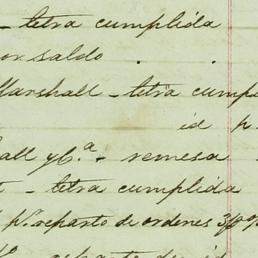 - letra cumplida
por saldo .
Marshall - letra cumpl
id p
all y Cª. - remesa
- letra cumplida
pr. reparto de ordenes 3/8
reparto de id